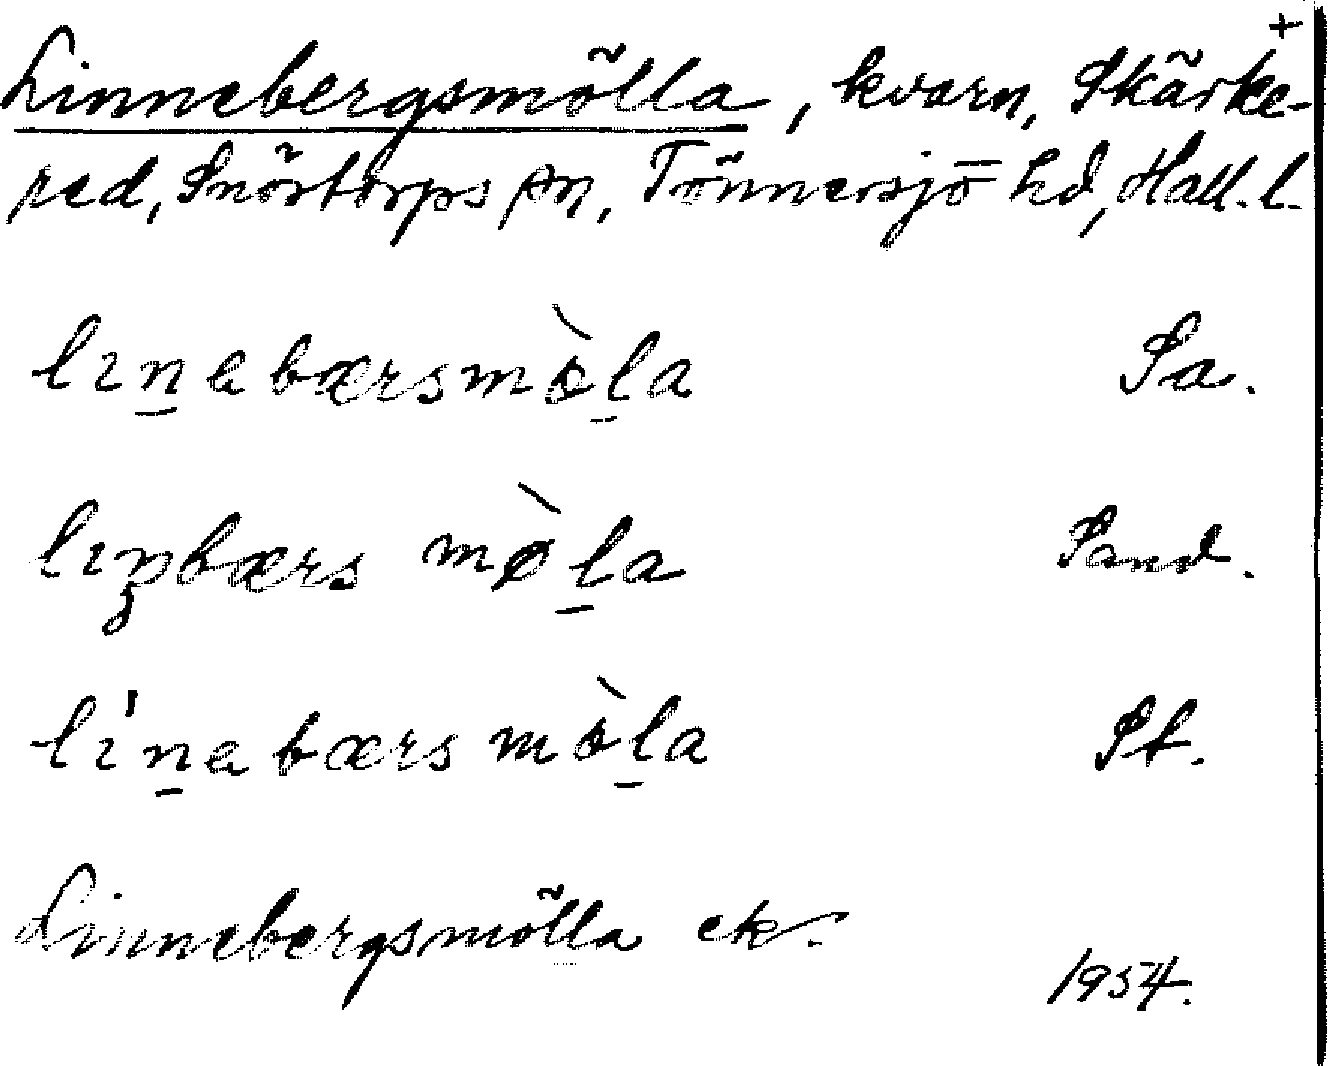 +
Linnebergsmölla, kvarn, Skärke-
red, Snöstorps sn, Tönnersjö hd, Hall. l.
lın̲ebærsmò̀l̲a Sa.
lın̥bærs mø̀l̲a Sand.
lı'n̲ebærs mò̀l̲a St.
Linnebergsmölla ek.
1954.